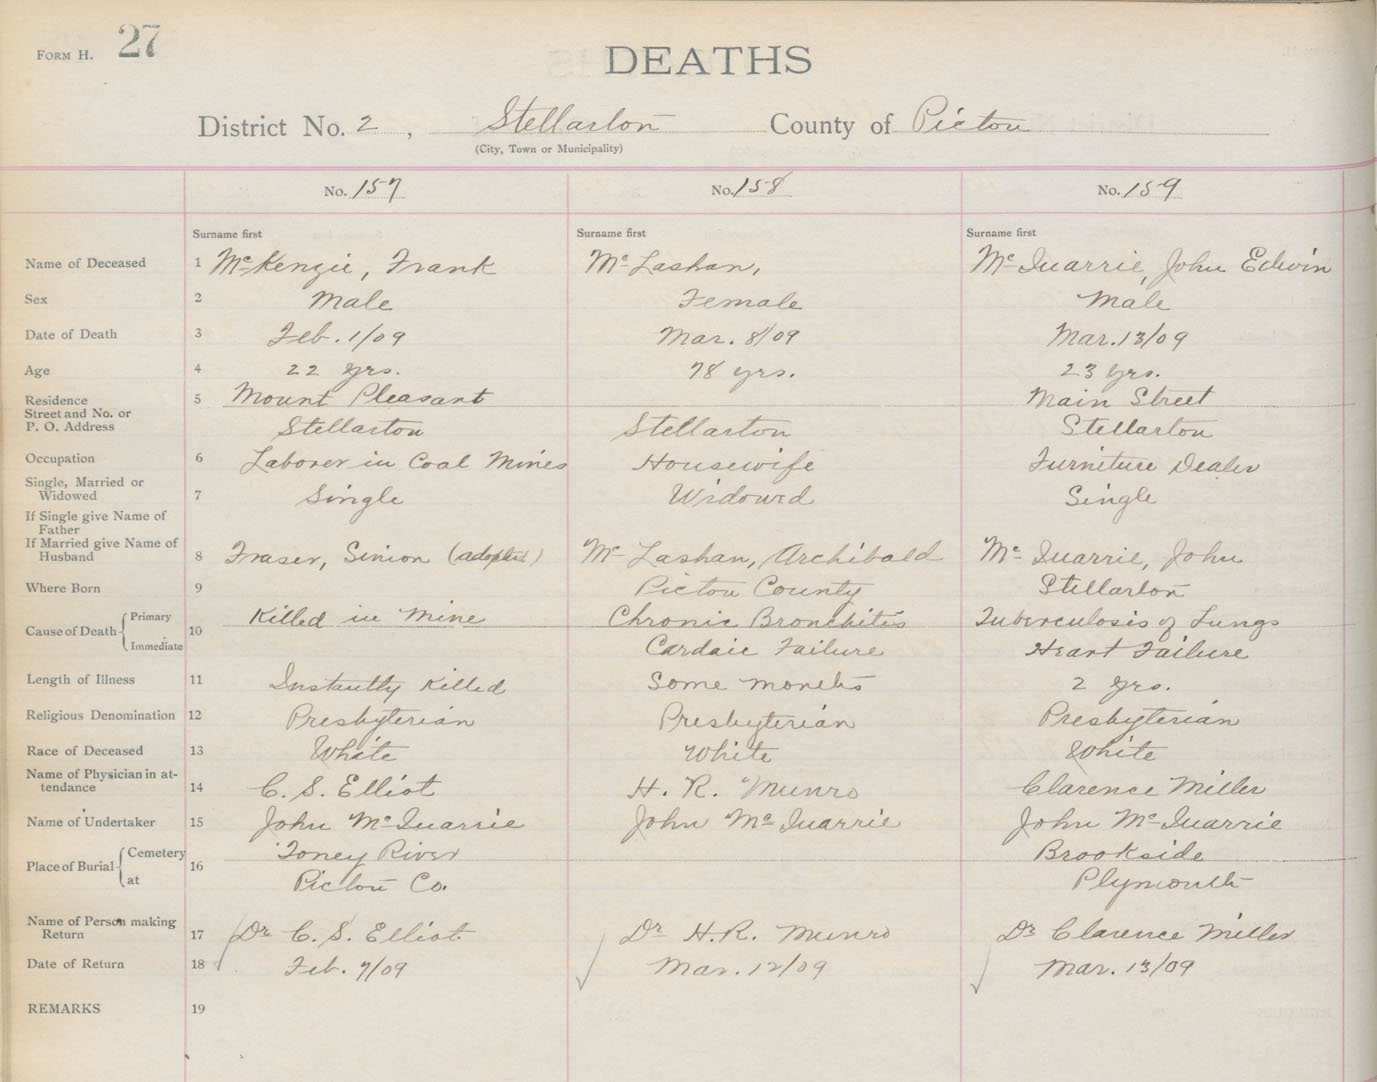 FORM H. 27
DEATHS
District No. 2, Stellarton County of Pictou
(City, Town or Municipality)
No. 157 No. 158 No. 159
Surname first Surname first Surname first
Name of Deceased 1 McKenzie, Frank McLashan, McQuarrie, John Edwin
Sex 2 Male Female Male
Date of Death 3 Feb. 1/09 Mar. 8/09 Mar. 13/09
Age 4 22 yrs. 78 yrs. 23 yrs.
Residence 5 Mount Pleasant Main Street
Street and No. or
P. O. Address Stellarton Stellarton Stellarton
Occupation 6 Laborer in Coal Mines Housewife Furniture Dealer
Single, Married or
Widowed 7 Single Widowed Single
If Single give Name of
Father
If Married give Name of
Husband 8 Fraser, Simon (adopted) McLashan, Archibald McQuarrie, John
Where Born 9 Pictou County Stellarton
Cause of Death Primary 10 Killed in Mine Chronic Bronchitis Tuberculosis of Lungs
Immediate Cardaic Failure Heart Failure
Length of Illness 11 Instantly Killed Some months 2 yrs.
Religious Denomination 12 Presbyterian Presbyterian Presbyterian
Race of Deceased 13 White White White
Name of Physician in at-
tendance 14 C. S. Elliot H. R. Munro Clarence Miller
Name of Undertaker 15 John McQuarrie John McQuarrie John McQuarrie
Place of Burial Cemetery 16 Toney River Brookside
at Pictou Co. Plymouth
Name of Person making
Return 17 Dr C. S. Elliot Dr H. R. Munro Dr Clarence Miller
Date of Return 18 Feb. 7/09 Mar. 12/09 Mar. 13/09
REMARKS 19